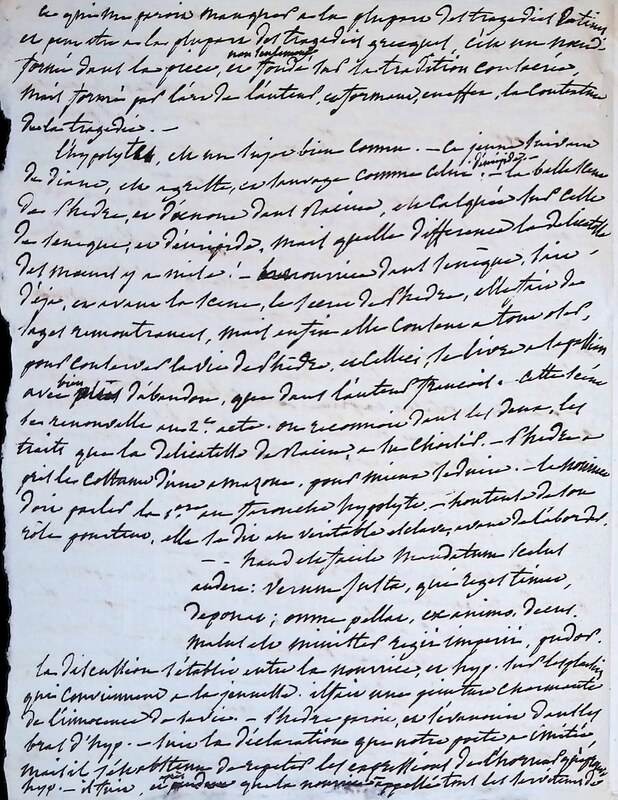 ce qui me paroit manquer a la plupart des tragedies latines
et peut etre a la plupart des tragedies grecques, c'est un noeud
formé dans la piece, et fondé non seulement sur la tradition conservée
mais formé par l'art de l'auteur, et formant, en effet, la contexture
de la tragedie. —
l'hypolyte, est un sujet bien connu. — ce jeune suivant
de diane, est agreste, et sauvage comme celui d'euripide. — la belle scene
de Phedre, et d'oenone dans Racine, est calquée sur celle
de seneque, et d'euripide, mais quelle difference la delicatesse
des moeurs y a mele! — la nourrice dans seneque, sait
deja, en avant la scene, le secret de Phedre, elle fait de
sages remontrances, mais enfin elle consent a tout oser,
pour conserver la vie de Phedre, et celle ci, se livre a la passion
avec bien d'abandon, que dans l'auteur francais. — cette scene
se renouvelle au 2e. acte. on reconnoit dans les deux, les
traits que la delicatesse de Racine, a su choisir. — Phedre a
pris le costume d'une amazone, pour mieux seduire. — la nourrice
doit parler la 1ere au farouche hypolyte. — honteuse de son
rôle pourtant, elle se dit en veritable esclave, avant de l'aborder.
— — haud est facile mandatum scelus
audere: verum justa, qui reges timet,
deponat; omne pellat, ex animo, decus
malus est minister regii imperii, pudor.
la discussion s'etablit entre la nourrice, et hyp. sur les plaisirs
qui conviennent a la jeunesse. il fait une peinture charmante
de l'innocence de sa vie. — Phedre paroit, et s'evanouit dans les
bras d'hyp. — suit la declaration que notre poete a imitée
mais il s'est abstenu de repeter les expressions de l'horreur
hyp. — il fuit, et que la nourrice appelle tous les serviteurs de